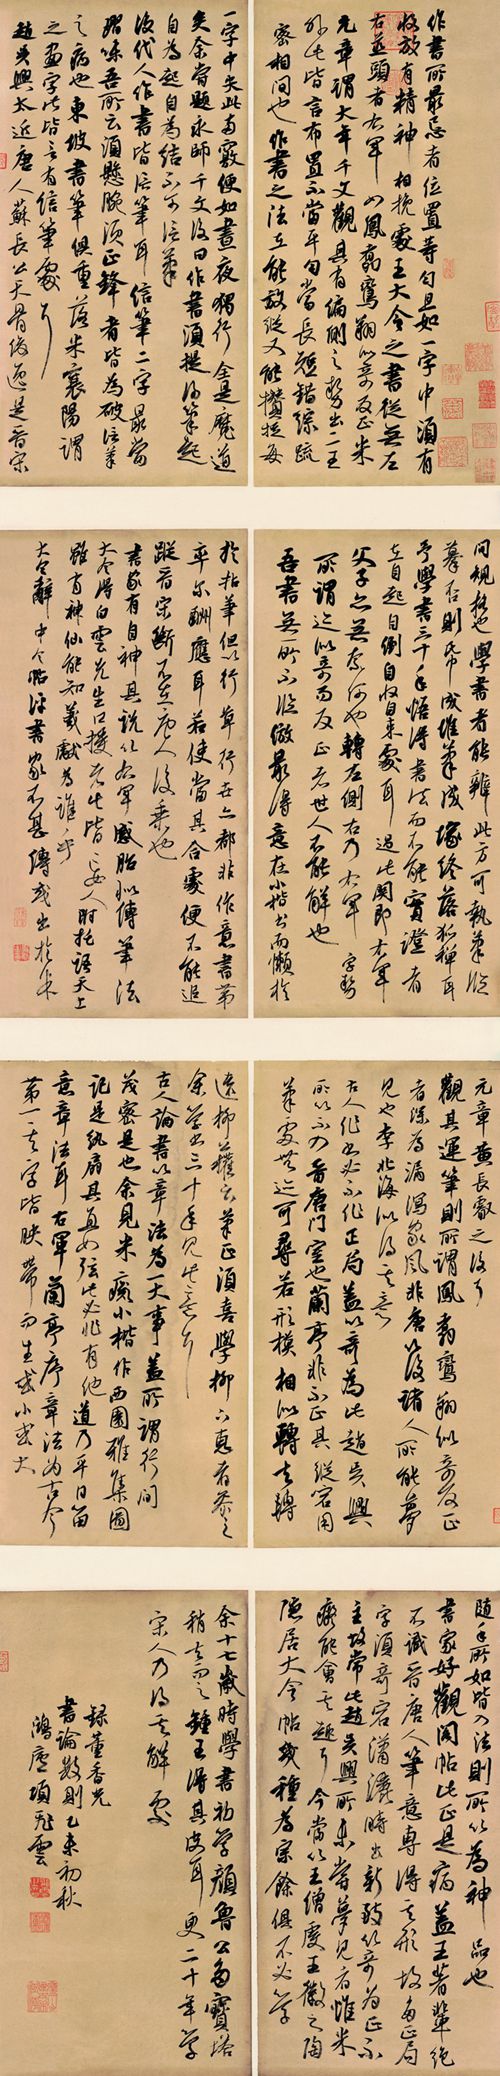 作書所最忌者位置等勻且如一字中須有
收放有精神相挽處王大令之書從無左
右並頭者右軍如鳳翥鸞翔似奇反正米
元章謂大年千文觀其有偏側之勢出二王
外此皆言布置不當平勻當長短錯綜疏
密相間也作書之法在能放縱又能攢捉每
一字中失此兩竅便如晝夜獨行全是魔道
矣余嘗題永師千文後曰作書須提得筆起
自為起自為結不可信筆
後代人作書皆信筆耳信筆二字最當
玩味吾所云須懸腕須正鋒者皆為破信筆
之病也東坡書筆俱重落米襄陽謂
之畫字此皆言有信筆處耳
趙吳興大近唐人蘇長公天骨俊逸是晉宋
間規格也學書者能辨此方可執筆臨
摹否則紙成堆筆成塚終落狐禪耳
予學書三十年悟得書法而不能實證者
在自起自倒自收自束處耳過此關即右軍
父子亦無奈何也轉左側右乃右軍字勢
所謂迹似奇而反正者世人不能解也
吾書無所不臨倣最得意在小楷書而懶於
於拈筆但以行草行世亦都非作意書第
率爾酬應耳若使當其合處便不能追
蹤晉宋斷不在唐人後乘也
書家有自神其說以右軍感胎似傳筆法
大令得白雲先生口授者此皆妄人附託語天上
雖有神仙能知羲獻為誰乎
大令辭中令帖評書家不甚傳或出於米
元章黃長睿之後耳
觀其運筆則所謂鳳翥鸞翔似奇反正
者深為漏瀉家風非唐以後諸人所能夢
見也李北海似得其意
古人作書必不作正局蓋以奇為此趙吳興
所以不入晉唐門室也蘭亭非不正其縱容用
筆處無迹可尋若形模相似轉去轉
遠柳權云筆正須善學柳下惠者參之
余學書三十年見此意耳
古人論書以章法為一大事蓋所謂行間
茂密是也余見米癡小楷作西園雅集圖
記是紈扇其直如弦此必非有他道乃平日留
意章法耳右軍蘭亭序章法為古今
第一其字皆映帶而生或小或大
隨手所如皆入法則所以為神品也
書家好觀閣帖此正是病蓋王著輩絕
不識晉唐人筆意專得其形故多正局
字須奇宕瀟灑時出新致以奇為正不
主故常此趙吳興所未嘗夢見者惟米
癡能會其趣耳今當以王僧虔王徽之陶
隱居大令帖幾種為宗餘俱不必學
余十七歲時學書初學顏魯公多寶塔
稍去而之鍾王得其皮耳更二十年學
宋人乃得其解處
錄董香光
書論數則乙未初秋
鴻廬項飛雲